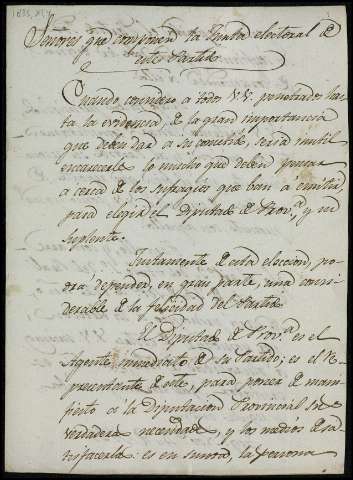 Señores que componen la Junta electoral de
este Partido
Cuando considero a todos VV. penetrados has
ta la evidencia de la gran importancia
que deben dar a su cometido, sería inutil
encarecerle lo mucho que deben pensar
a cerca de los sufragios que ban a emitir,
para elegir el Diputado de Prov.ª y su
Suplente.
Justamente de esta eleccion, po
drá depender, en gran parte, una consi
derable de la felicidad del Partido.
El Diputado de Prov.ª es el
Agente inmediato de su Partido; es el Re
presentante de este, para poner de mani
fiesto a la Diputacion Provincial sus
verdaderas necesidades, y los medios de sa
tisfacerlas: es en suma, la persona